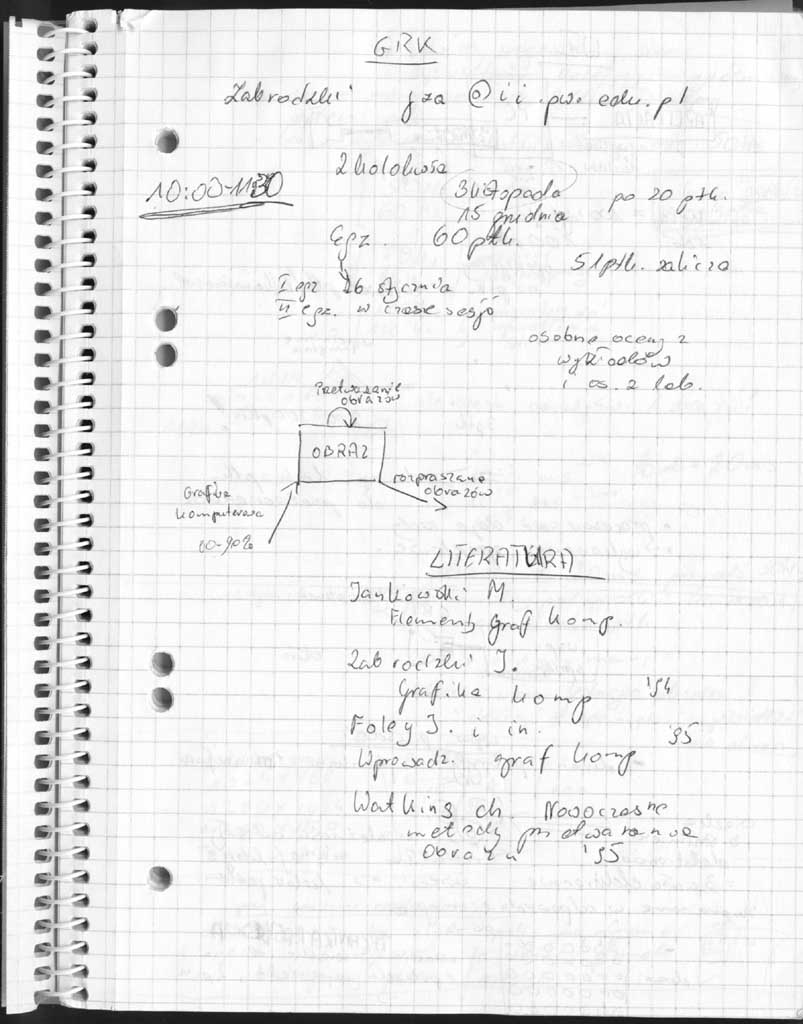 GRK
Zabrodzki jza @ii.pw.edu.pl
2 kolokwia
10:00-11:30
3 listopada po 20 ptk.
15 grudnia
Egz. 60 ptk.
51 ptk. zalicza
I egz 26 stycznia
II egz. w czasie sesji
osobne oceny z
wykładów
i os. z lab.
Przetwarzanie
obrazów
OBRAZ
rozpraszane
obrazów
Grafika
komputerowa
80-90%
LITERATURA
Jankowski M.
Elementy graf komp.
Zabrodzki J.
Grafika komp '94
Foley J. i in. 95
Wprowadz. graf komp
Watking ch. Nowoczesne
metody przetwarzania
Obrazu '95